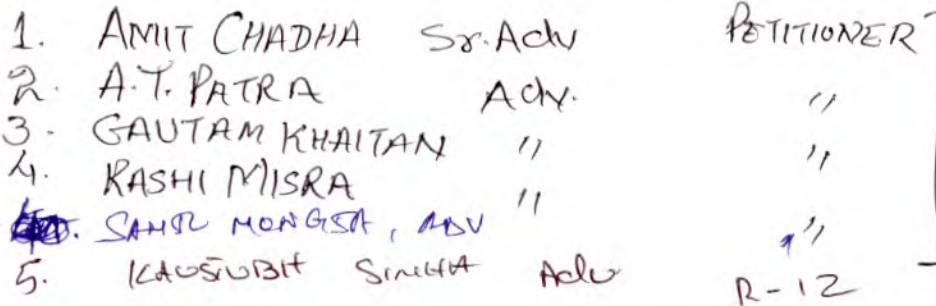 1. AMIT CHADHA Sr. Adv PETITIONER
2. A.T. PATRA Adv. "
3. GAUTAM KHAITAN " "
4. RASHI MISRA " "
SAMIR , ADV "
5. KAUSTUBH SINGHA Adv R-12